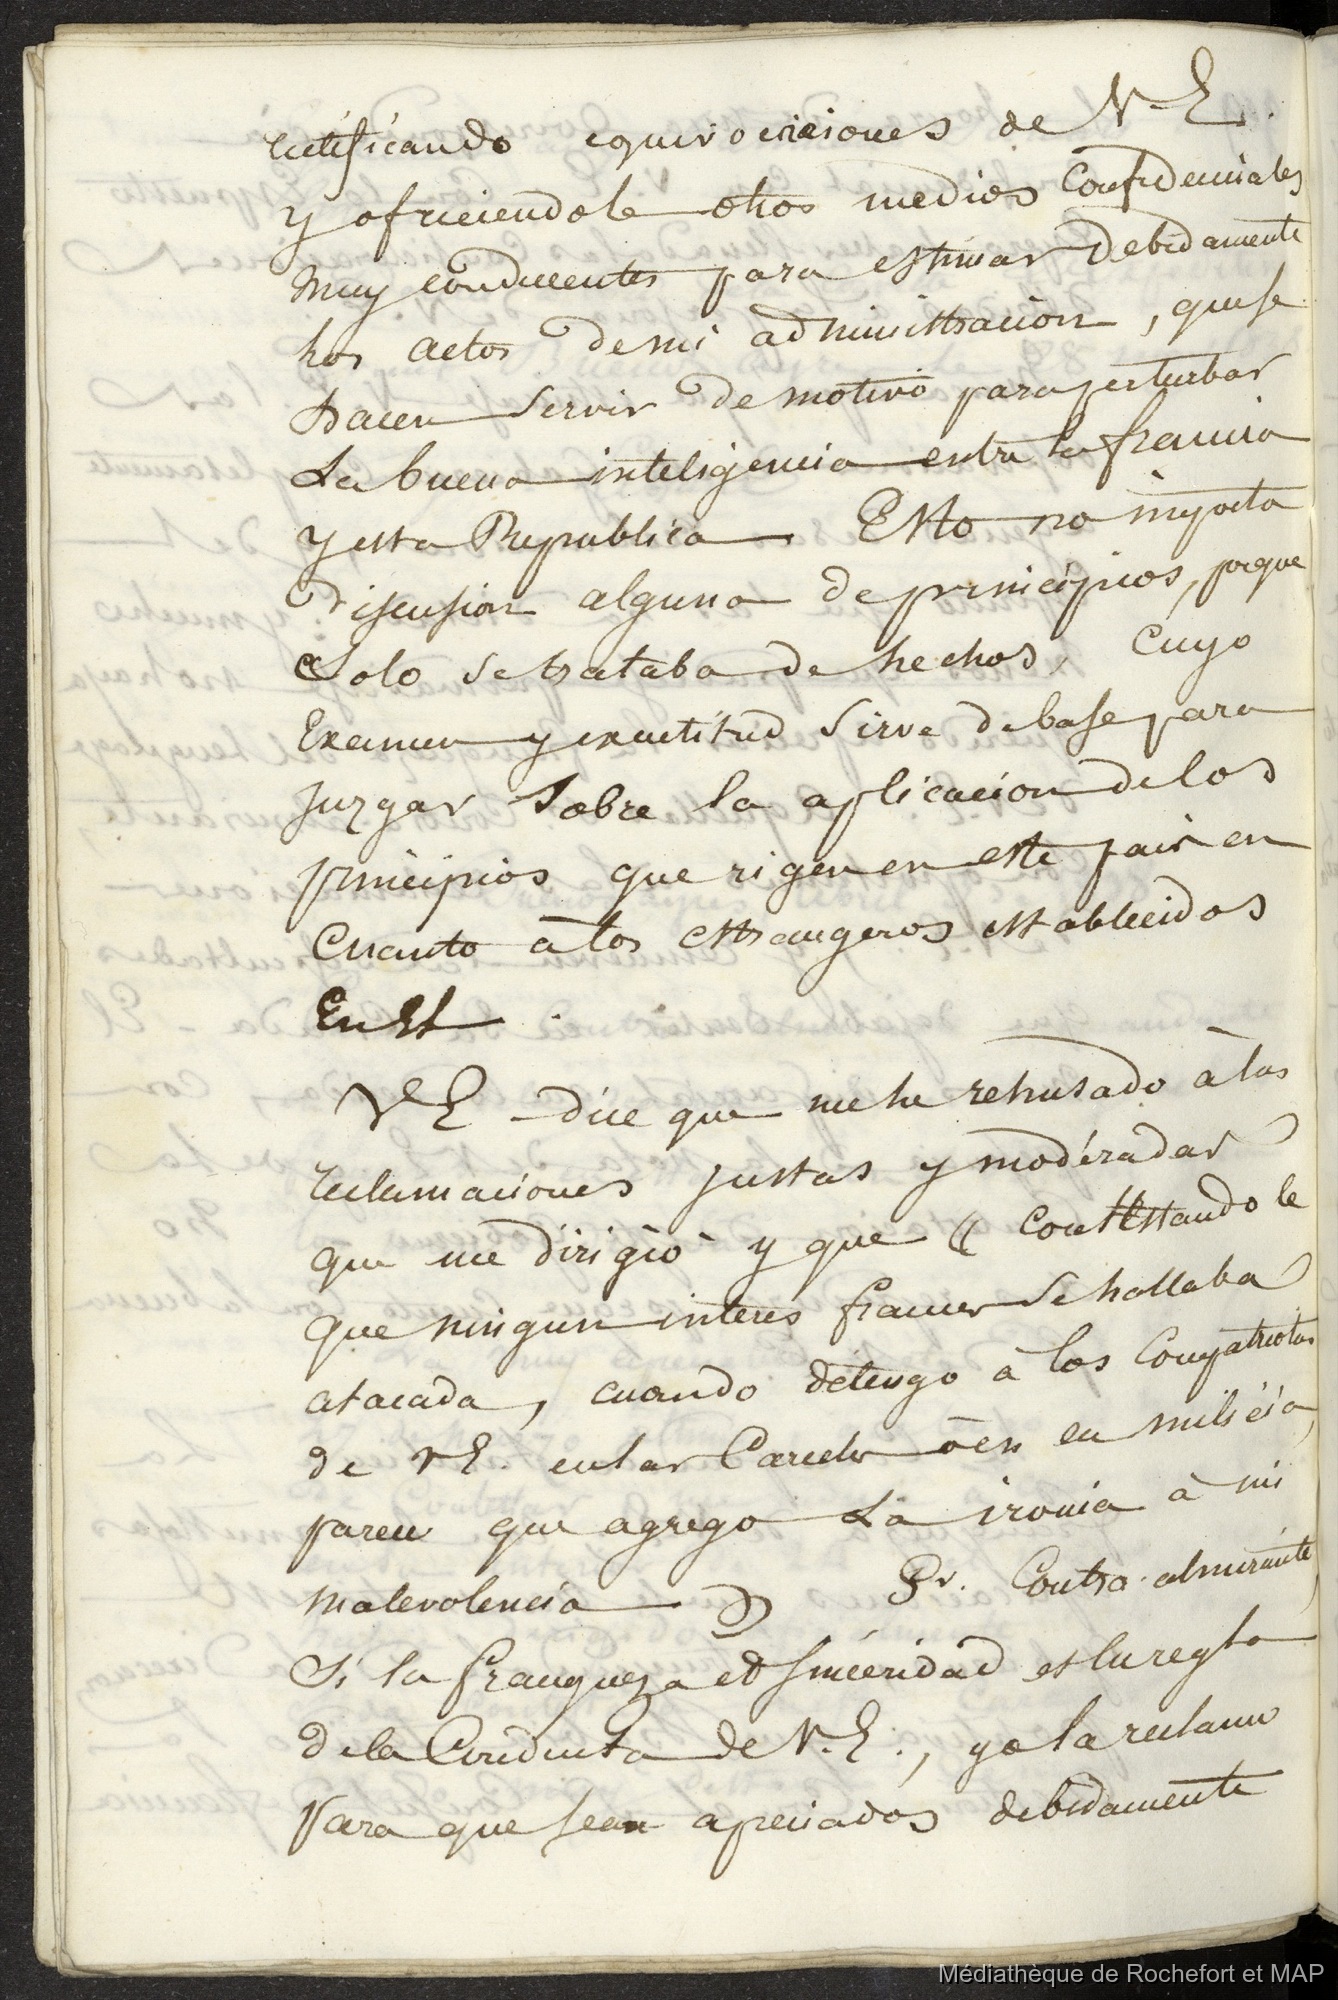 rectificando equivocaciones de V. E.
y ofreciendole otros medios confidenciales
muy conducentes para estimar debidamente
los actos de mi administracion, que se
hacen servir de motivo para perturbar
la buena inteligencia entre la francia
y esta Republica. Esto no importa
discusion alguna de principios, porque
solo se trataba de hechos, cuyo
Examen y exactitud sirve de base para
juzgar sobre la aplicacion de los
principios que rigen en este pais en
Cuanto à los estrangeros establecidos
En El.
V E dice que me he rehusado à las
reclamaciones justas y moderadas
que me dirigiò y que « contestandole
que ningun interes frances se hallaba
atacado, cuando detengo à los Compatriotas
de V E. en las Carceles ò en en milicia,
parece que agrego la ironia à mi
malevolencia » Sr. Contra-almirante,
Si la franqueza et sinceridad es la regla
de la Conducta de V. E., yo la reclamo
Para que sean apreciados debidamente
Médiathèque de Rochefort et MAP